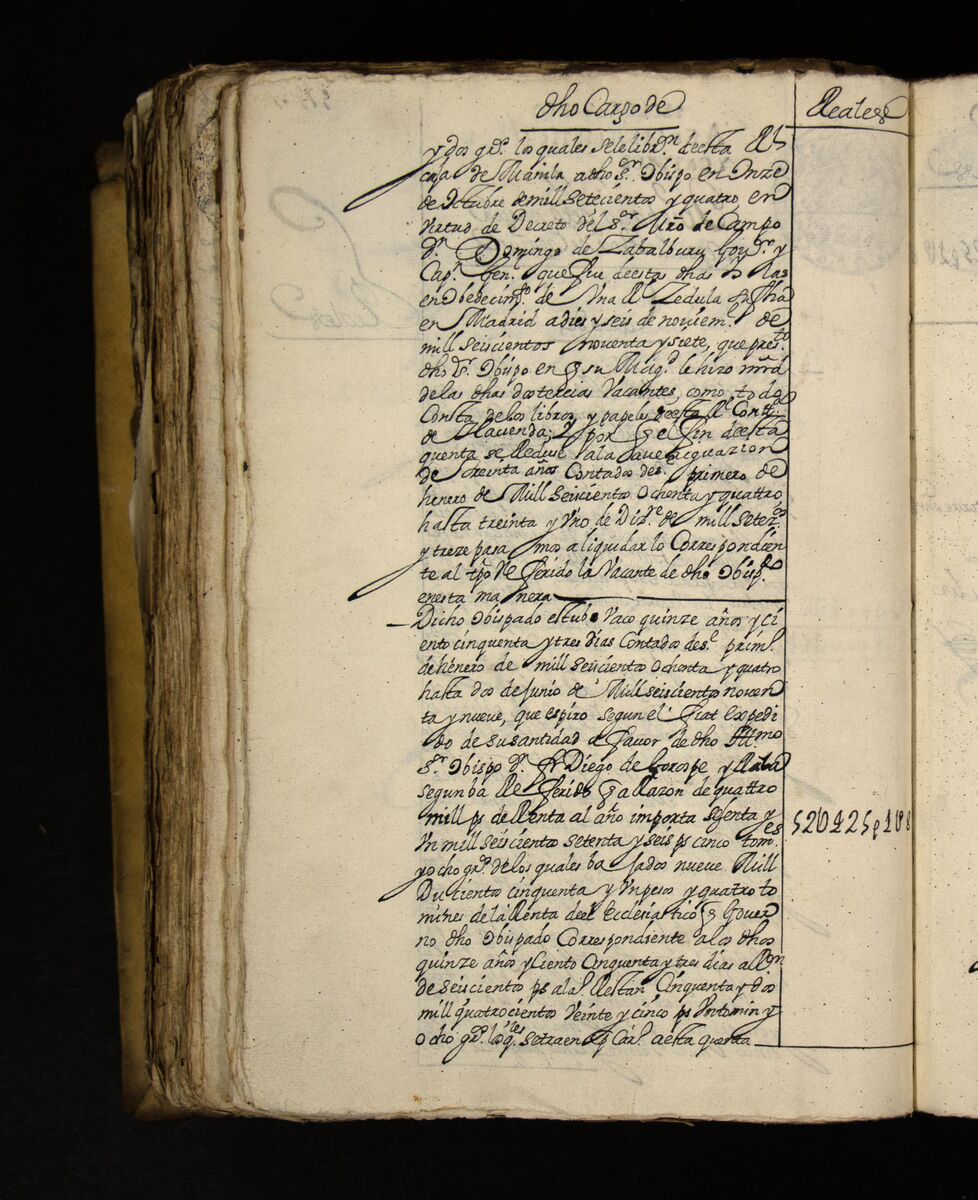 dho Cargo de
Reales
y dos grs. los quales se le librn. de esta Rl.
caja de Manila a dho Sr. Obispo en Onze
de Octubre de mill setecientos y quatro, en
virtud de Decreto del Sor. Mro de Campo
Dn. Domingo de Zabalburu Govr. y
Capn. Genl. que fue de estas dhas Yslas
en Obedecimto. de Una Rl. Zedula su fha
en Madrid a dies y seis de noviemre. de
mill seiscientos noventa y siete, que presto.
dho Sr. Obispo en q su Magd. le hizo mrd
de las dhas dos tercias Vacantes, como todo
Consta de los libros, y papeles de esta Rl. Contra.
de Hacienda; Y por q el fin de esta
quenta se Reduse a la averiguazion
de treinta años Contados des. primero de
henero de Mill seiscientos Ochenta y quattro
hasta treinta y Uno de Dizre. de mill setezos.
y treze pasamos a liquidar lo Correspondien
te al tpo Referido la Vacante de dho Obispdo
en esta manera
Dicho Obispado estubo Vaco quinze años y ci
ento cinquenta y tres dias Contados dese. primo.
de henero de mill seiscientos Ochenta y quatro
hasta dos de Junio de Mill seiscientos noven
ta y nueve, que espiro segun el fiat Expedi
do de su santidad a favor de dho Illmo
Sr. Obispo Dn. Fr Diego de Gorospe y Irala
segun ba Referido q a Razon de quattro
mill ps de Renta al año importa sesenta y
Un mill seiscientos setenta y seis ps cinco tomes.
y ocho grs. de los quales bajados nueve Mill
Ducientos cinquenta y Un pesos y quatro to
mines de la Renta del Ecclesiastico q Gover
no dho Obispado Correspondiente a los dhos
quinze años y Ciento Cinquenta y tres dias a Rn.
de seiscientos ps al año. Restan Cinquenta y dos
mill quatrocientos Veinte y cinco ps Un tomin y
Ocho grs. los qles. se traen pr Cargo a esta quenta
52U425p1t8